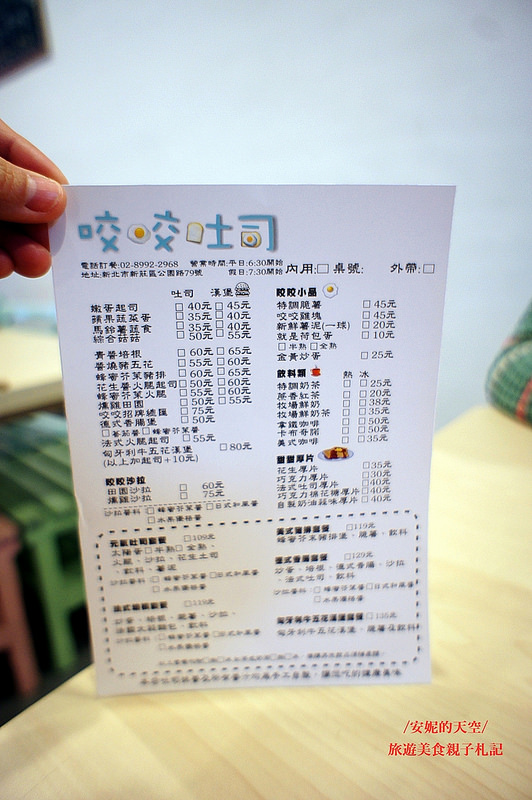 咬咬吐司
電話訂餐:02-8992-2968 營業時間:平日:6:30開始
地址:新北市新莊區公園路79號 假日:7:30開始
內用:□ 桌號: 外帶:□
吐司 漢堡
嫩蛋起司 □ 40元 □ 45元
蘋果蔬菜蛋 □ 35元 □ 40元
馬鈴薯蔬食 □ 35元 □ 40元
綜合菇菇 □ 50元 □ 55元
青醬培根 □ 60元 □ 65元
醬燒豬五花 □ 55元 □ 60元
蜂蜜芥茉豬排 □ 60元 □ 65元
花生醬火腿起司 □ 50元 □ 60元
蜂蜜芥茉火腿 □ 55元 □ 60元
燻雞田園 □ 50元 □ 55元
咬咬招牌總匯 □ 75元
德式香腸堡 □ 50元
□ 蕃茄醬 □ 蜂蜜芥茉醬
法式火腿起司 □ 55元
匈牙利牛五花漢堡 □ 80元
(以上加起司+10元)
咬咬沙拉
田園沙拉 □ 60元
燻雞沙拉 □ 75元
沙拉醬料 □ 蜂蜜芥茉醬 □ 日式和風醬
□ 水果優格醬
咬咬小品
特調脆薯 □ 45元
咬咬雞塊 □ 45元
新鮮薯泥(一球) □ 20元
就是荷包蛋 □ 10元
□ 半熟 □ 全熟
金黃炒蛋 □ 25元
飲料類 熱 冰
特調奶茶 □ □ 25元
蔗香紅茶 □ □ 20元
牧場鮮奶 □ □ 38元
牧場鮮奶茶 □ □ 35元
拿鐵咖啡 □ □ 50元
卡布奇諾 □ □ 50元
美式咖啡 □ □ 35元
甜甜厚片
花生厚片 □ 35元
巧克力厚片 □ 30元
法式吐司厚片 □ 40元
巧克力棉花糖厚片 □ 40元
自製奶油蒜味厚片 □ 40元
□ 109元
太陽蛋 □ 半熟 □ 全熟、
火腿、沙拉、花生吐司
、飲料、薯泥
沙拉醬料 □ 蜂蜜芥茉醬 □ 日式和風醬
□ 水果優格醬
□ 119元
炒蛋、培根、脆薯、沙拉、
、飲料
沙拉醬料 □ 蜂蜜芥茉醬 □ 日式和風醬
□ 水果優格醬
□ 119元
蜂蜜芥茉豬排堡、脆薯、飲料
□ 129元
炒蛋、培根、德式香腸、沙拉
、法式吐司、飲料
沙拉醬料 □ 蜂蜜芥茉醬 □ 日式和風醬
□ 水果優格醬
匈牙利牛五花漢堡、脆薯、飲料
/安妮的天空/
旅遊美食親子札記